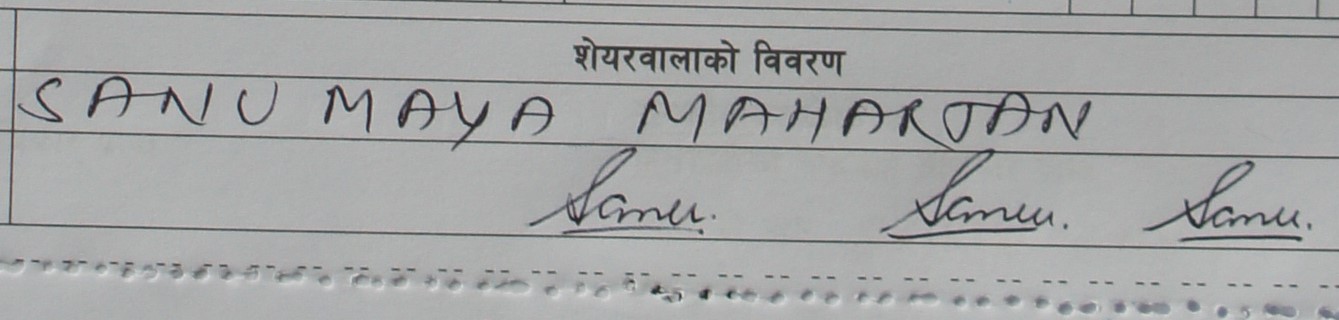 शेयरवालाको विवरण
SANU MAYA MAHARJAN
Sanu. Sanu. Sanu.